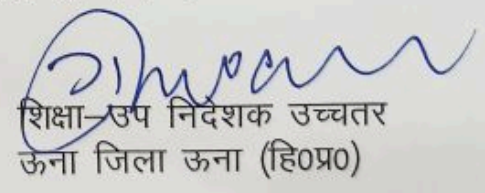 शिक्षा–उप निदेशक उच्चतर
ऊना जिला ऊना (हि0प्र0)